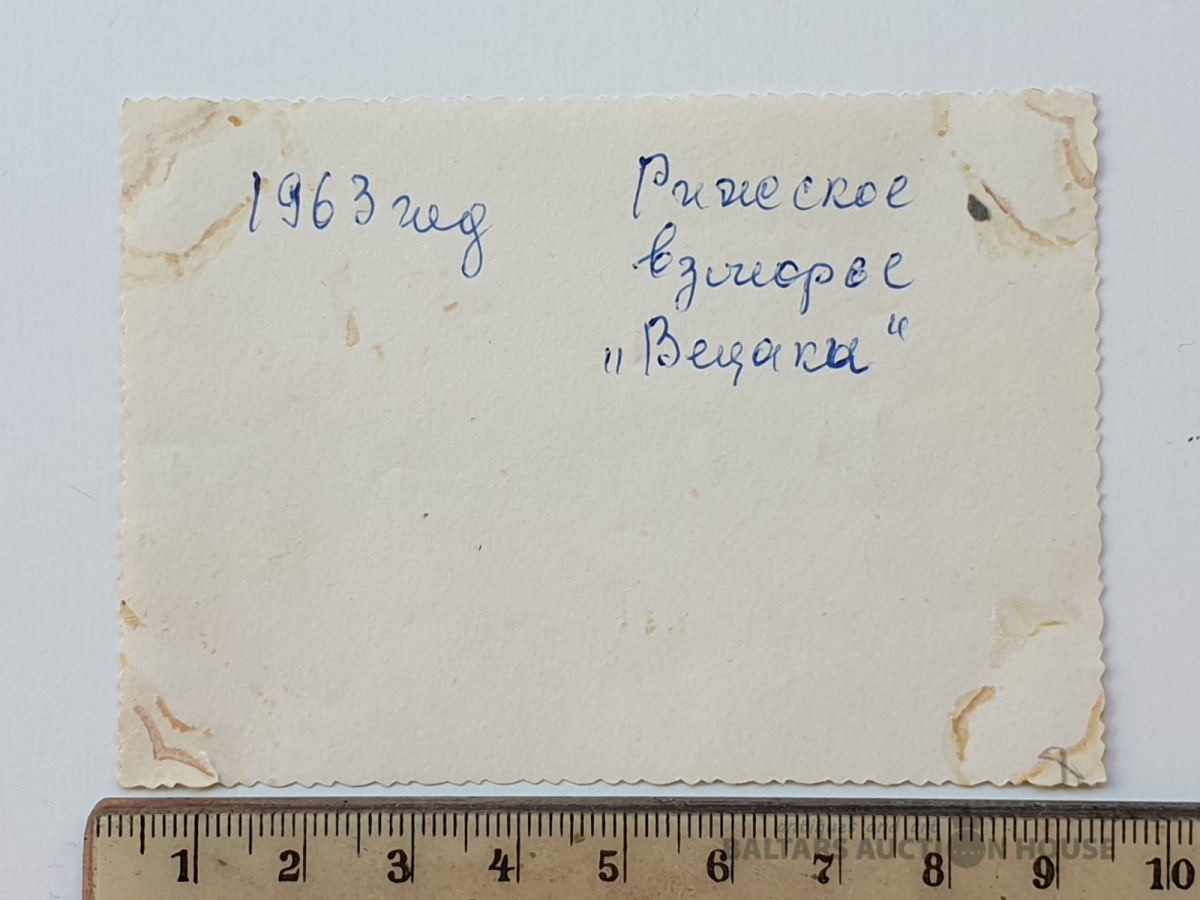 1963 год
Рижское
взморье
„Вецаки“
1 2 3 4 5 6 7 8 9 10
antiques and art
BALTARS AUCTION HOUSE